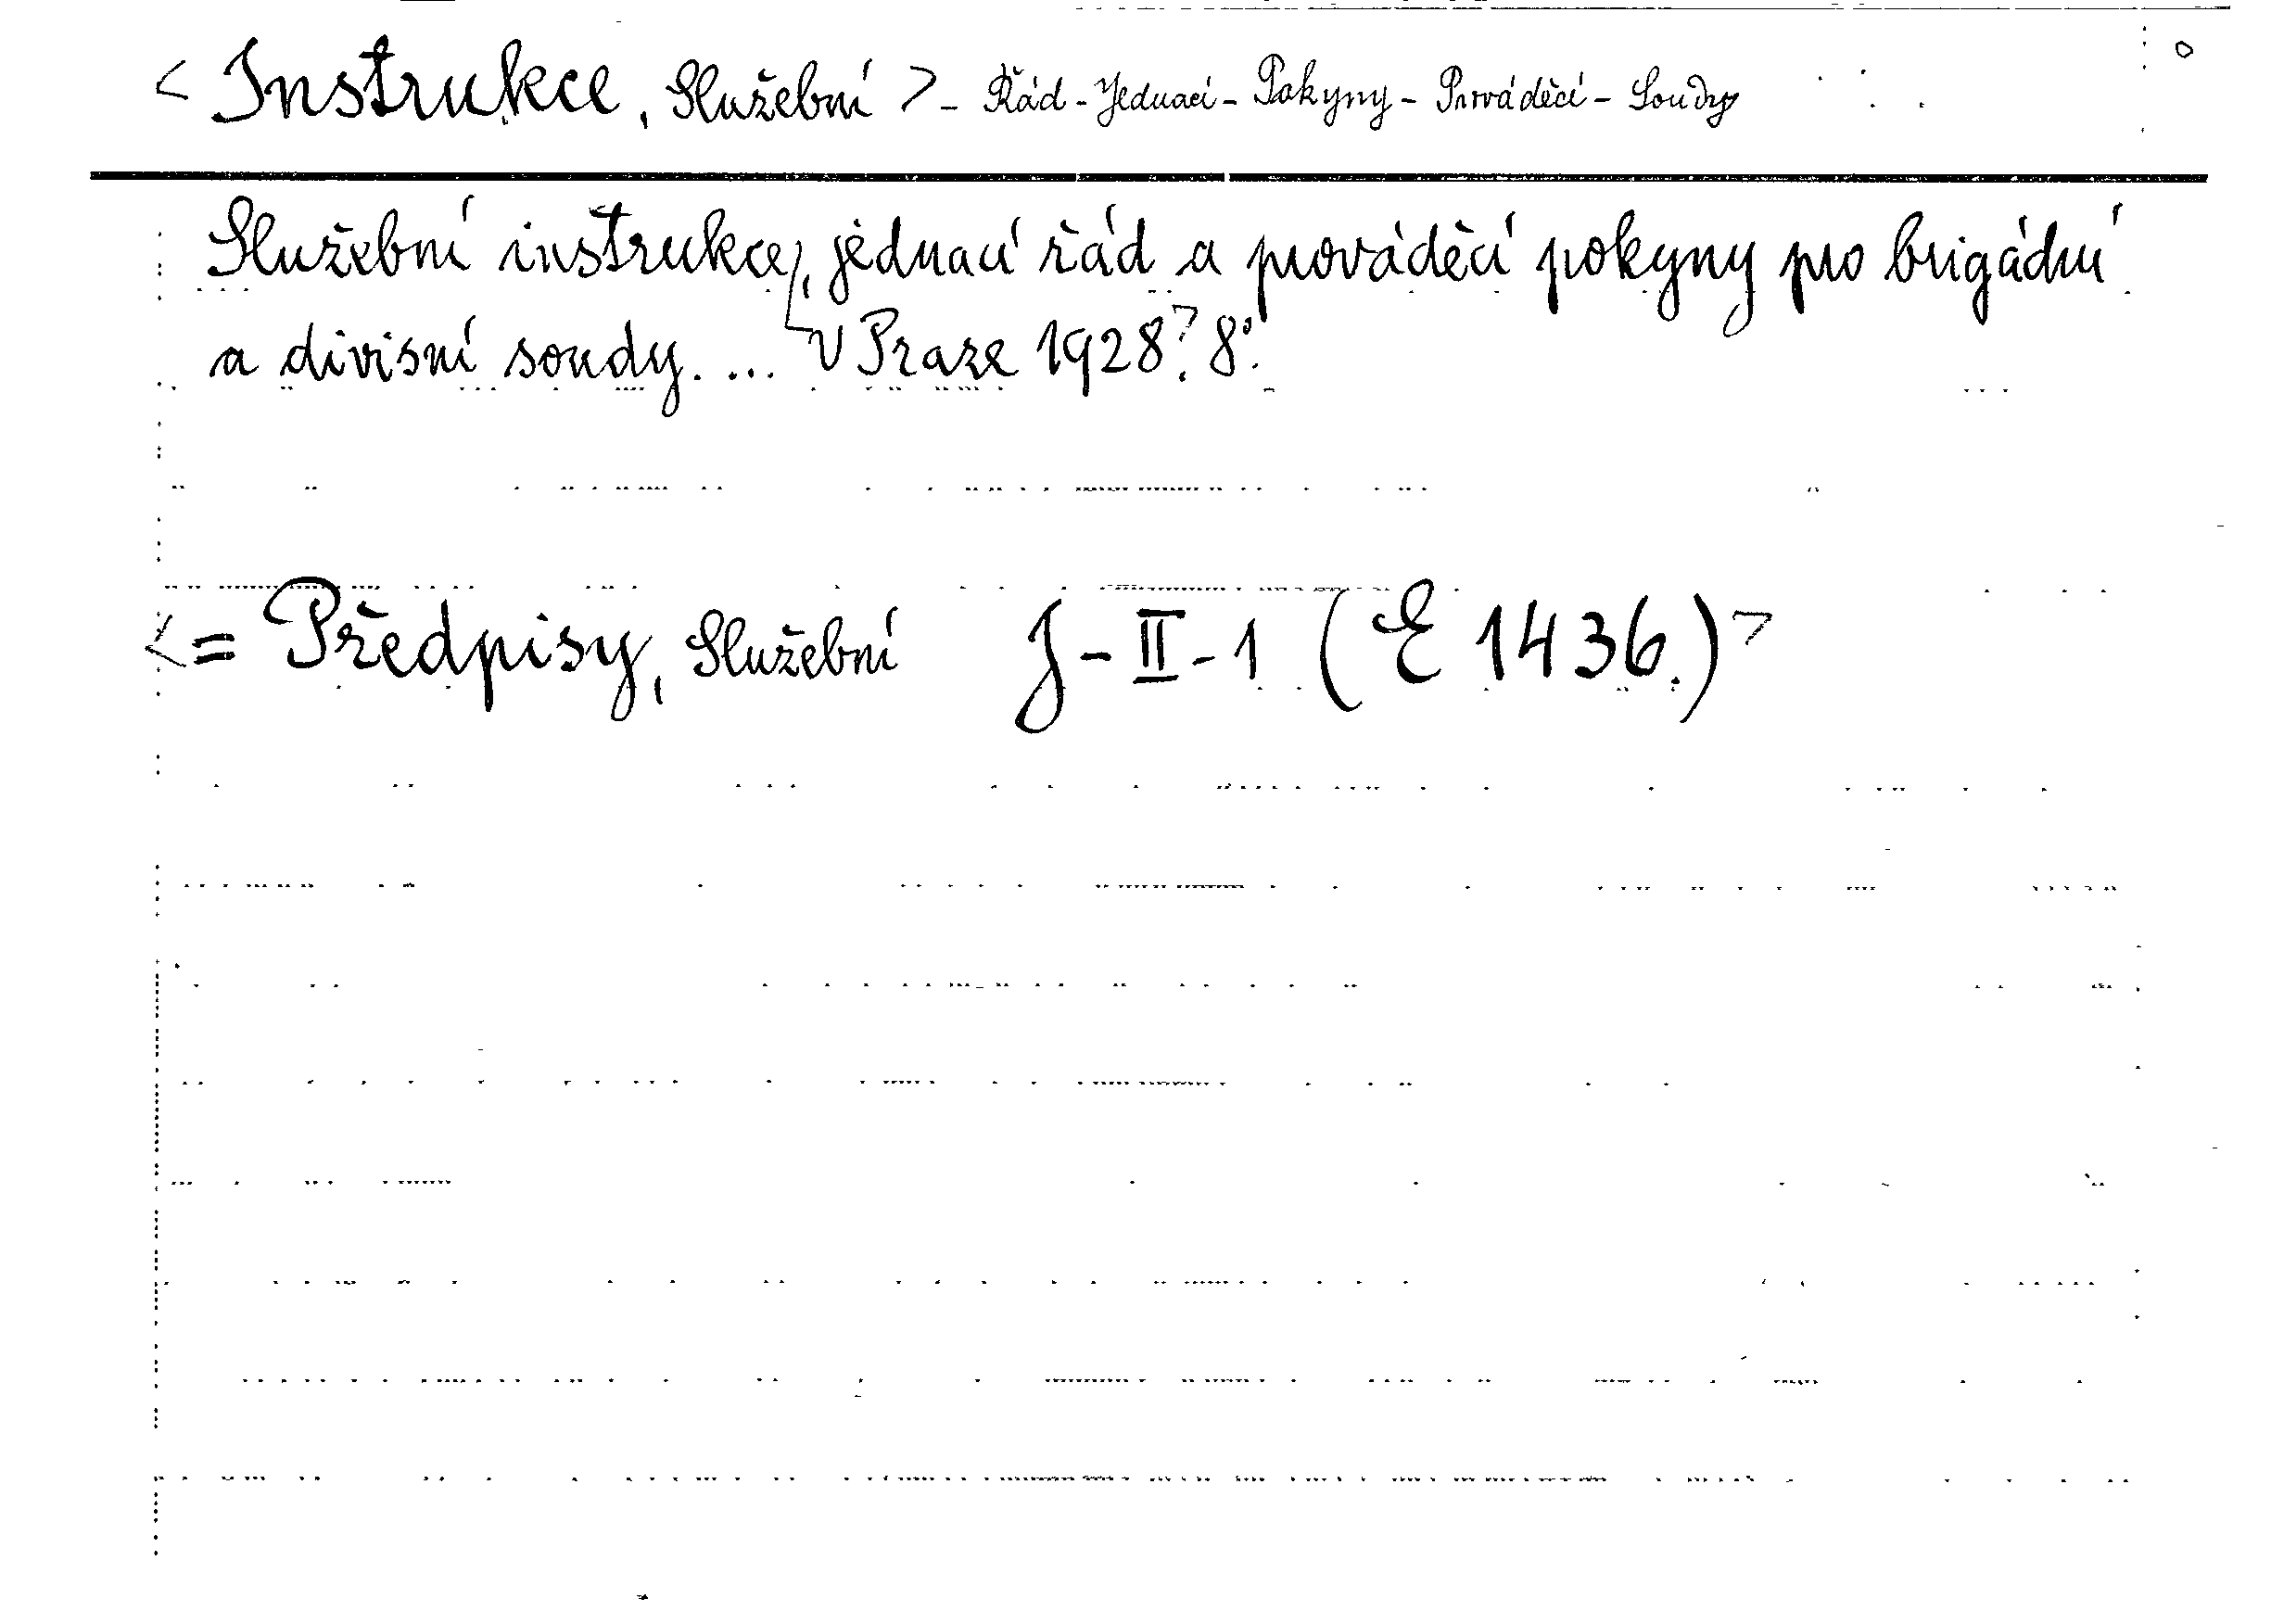 < Instrukce, Služební > - Řád - Jednací - Pokyny - Prováděcí - Soudy
Služební instrukce, jednací řád a prováděcí pokyny pro brigádní
a divisní soudy. ... V Praze 1928? 8°.
<= Předpisy, Služební J-II-1 (E 1436.)>